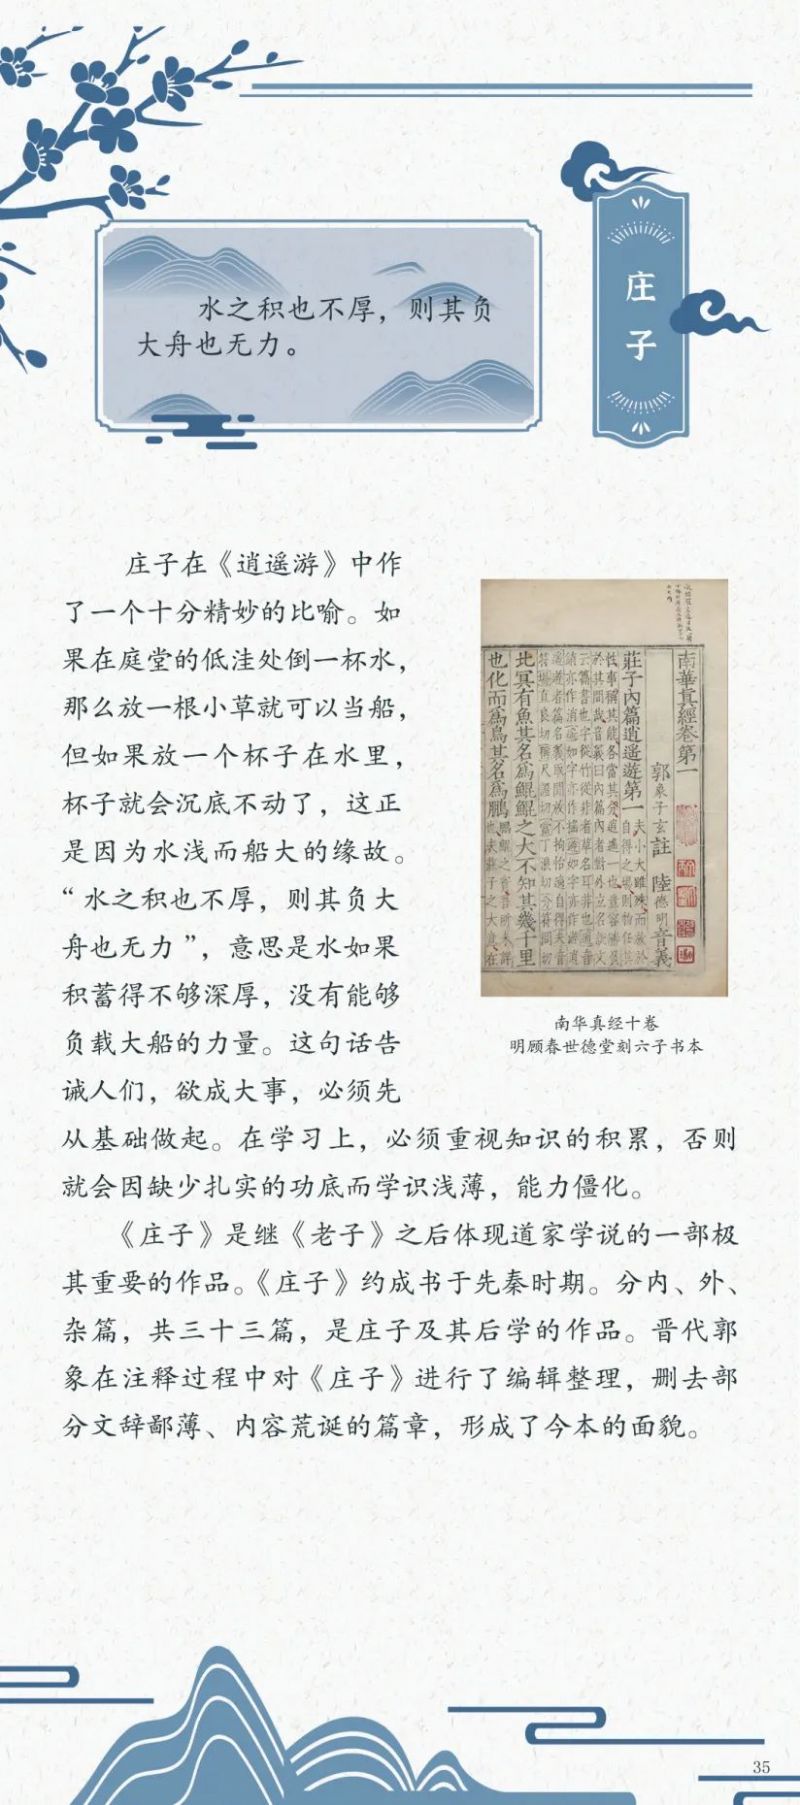 庄子
水之积也不厚，则其负
大舟也无力。
庄子在《逍遥游》中作
了一个十分精妙的比喻。如
果在庭堂的低洼处倒一杯水，
那么放一根小草就可以当船，
但如果放一个杯子在水里，
杯子就会沉底不动了，这正
是因为水浅而船大的缘故。
“水之积也不厚，则其负大
舟也无力”，意思是水如果
积蓄得不够深厚，没有能够
负载大船的力量。这句话告
诫人们，欲成大事，必须先
从基础做起。在学习上，必须重视知识的积累，否则
就会因缺少扎实的功底而学识浅薄，能力僵化。
南華真經卷第一
郭象子玄註 陸德明音義
莊子內篇逍遙遊第一
北冥有魚其名爲鯤鯤之大不知其幾千里
也化而爲鳥其名爲鵬
南华真经十卷
明顾春世德堂刻六子书本
《庄子》是继《老子》之后体现道家学说的一部极
其重要的作品。《庄子》约成书于先秦时期。分内、外、
杂篇，共三十三篇，是庄子及其后学的作品。晋代郭
象在注释过程中对《庄子》进行了编辑整理，删去部
分文辞鄙薄、内容荒诞的篇章，形成了今本的面貌。
35